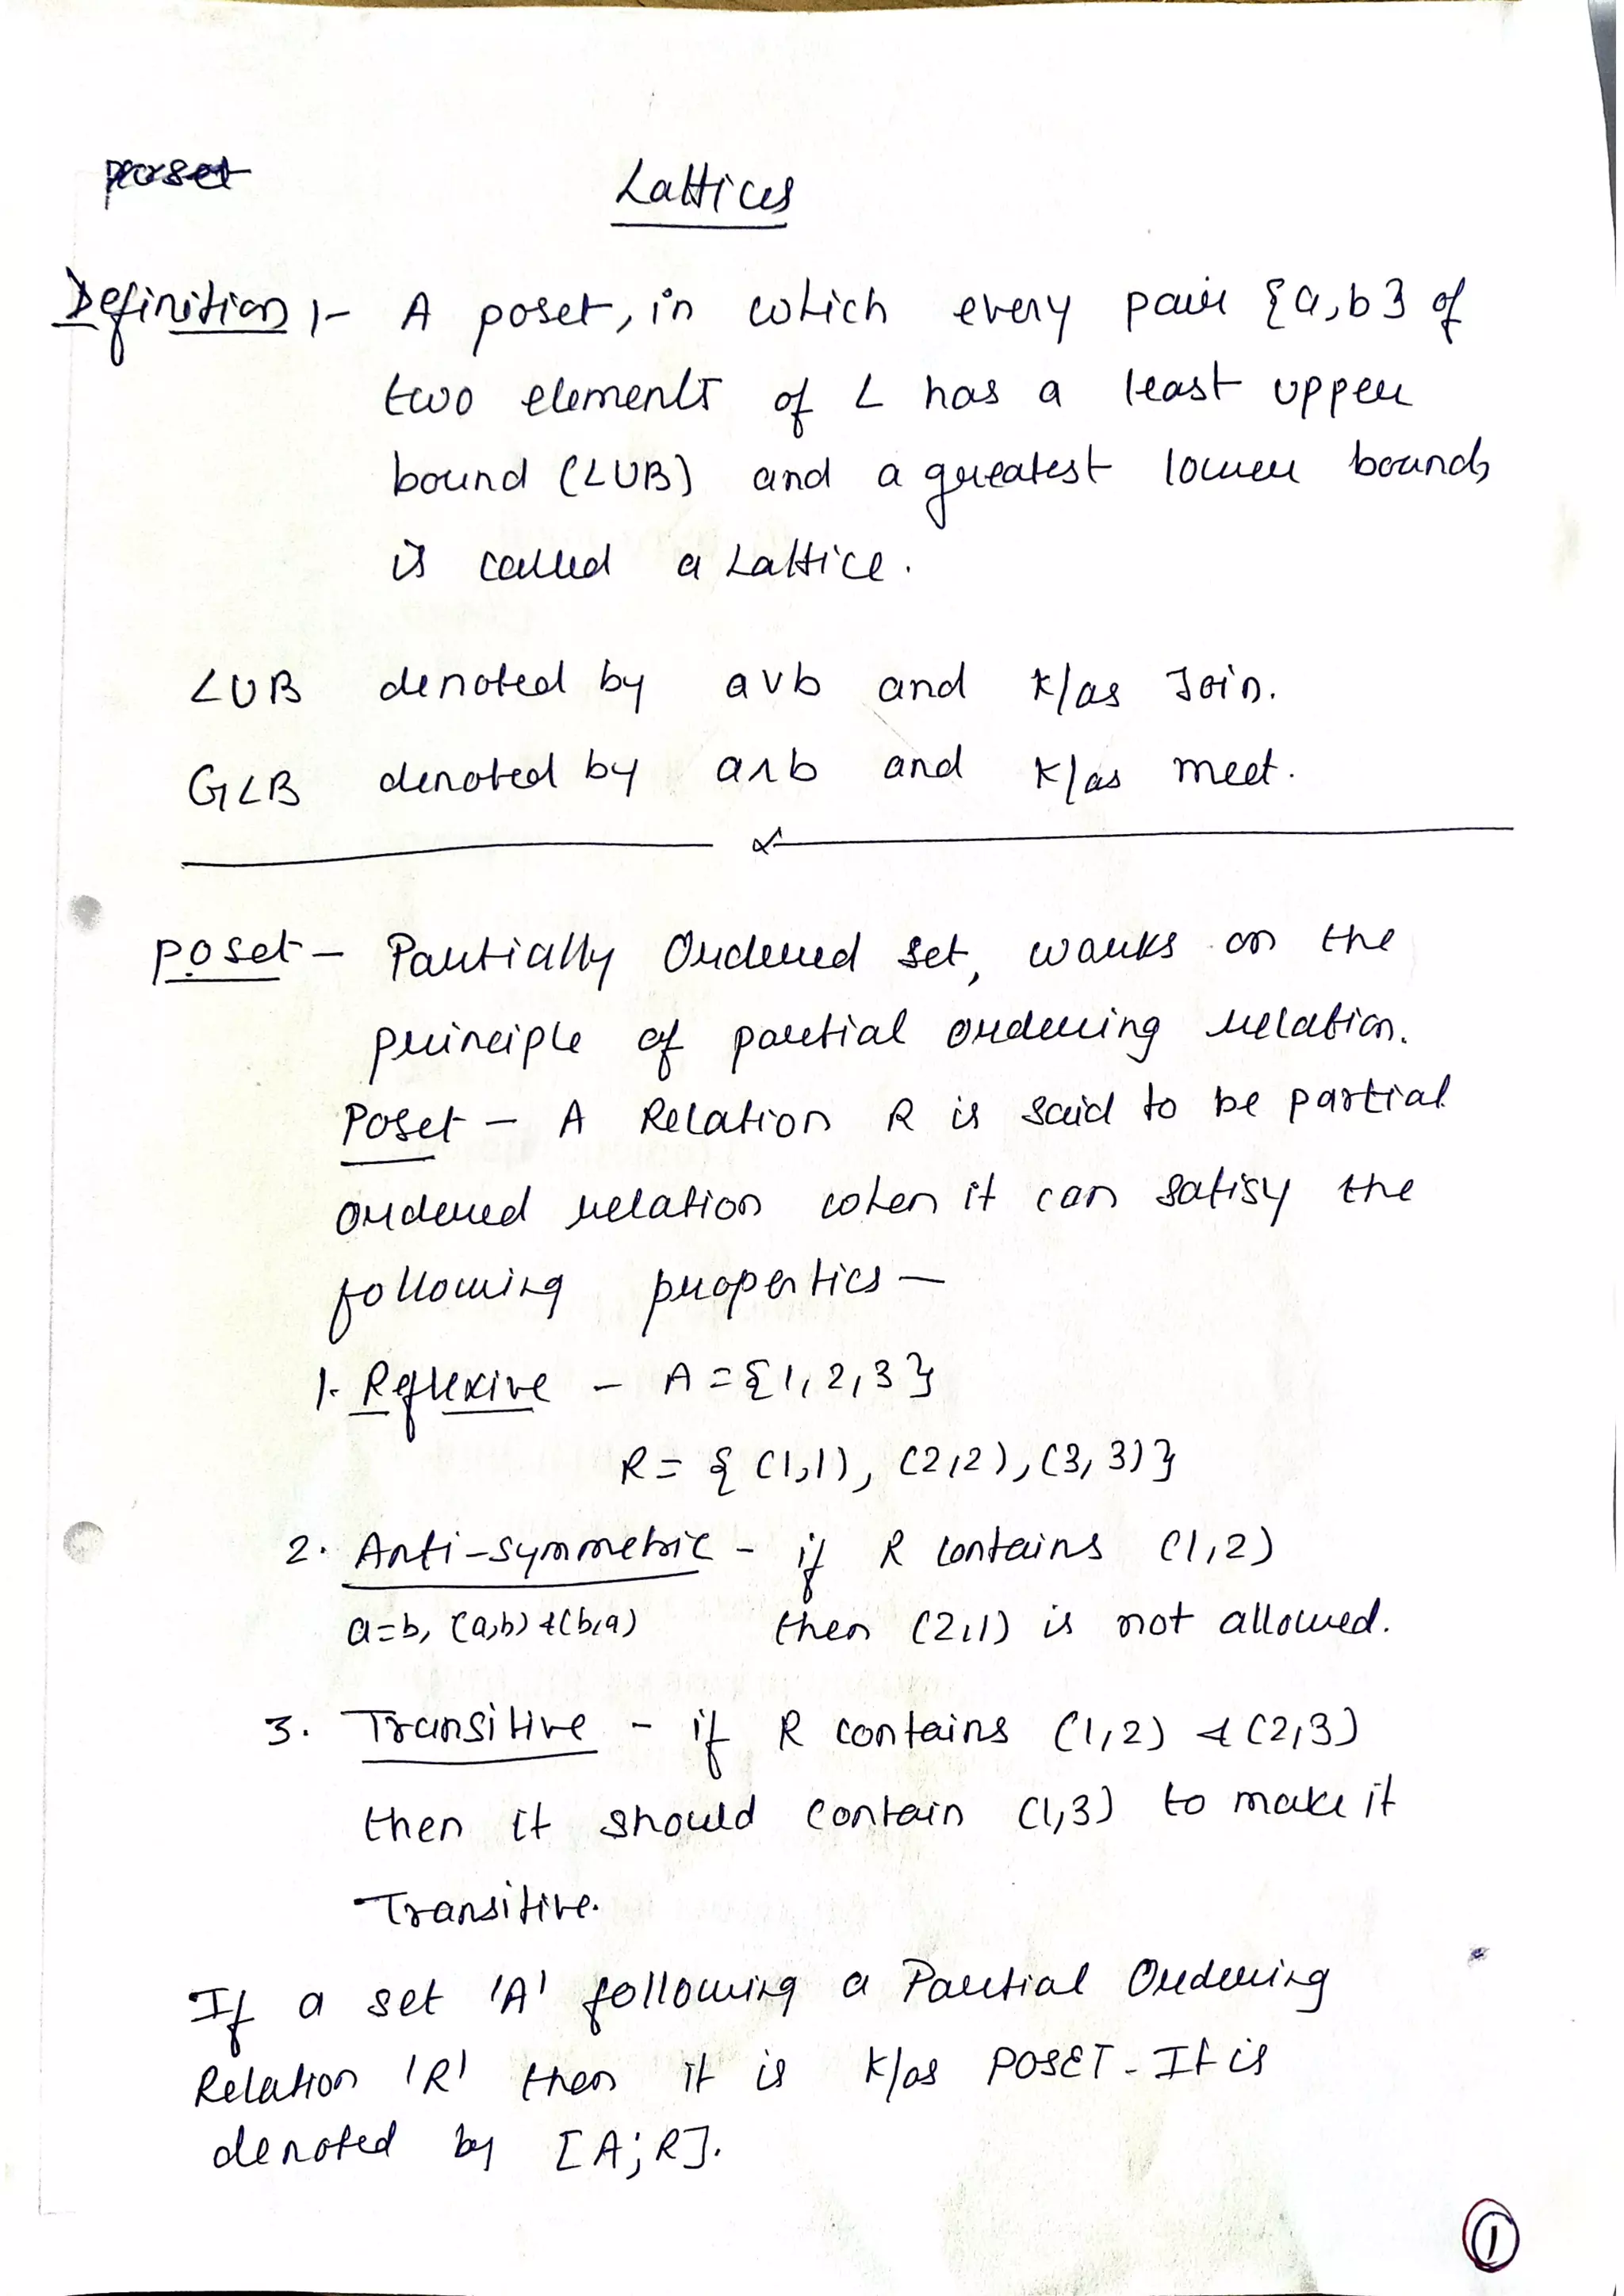 poset
Lattices
Definition :- A poset, in which every pair {a,b} of
two elements of L has a least upper
bound (LUB) and a greatest lower bound,
is called a Lattice.
LUB denoted by a∨b and K/as Join.
GLB denoted by a∧b and K/as meet.
Poset - Partially Ordered set, works on the
principle of partial ordering relation.
Poset - A Relation R is said to be partial
ordered relation when it can satisy the
following properties -
1. Reflexive - A = {1,2,3}
R = {(1,1), (2,2), (3,3)}
2. Anti-symmetric - if R contains (1,2)
a=b, (a,b) &(b,a) then (2,1) is not allowed.
3. Transitive - if R contains (1,2) & (2,3)
then it should contain (1,3) to make it
Transitive.
If a set 'A' following a Partial Ordering
Relation 'R' then it is K/as POSET. It is
denoted by [A;R].
1